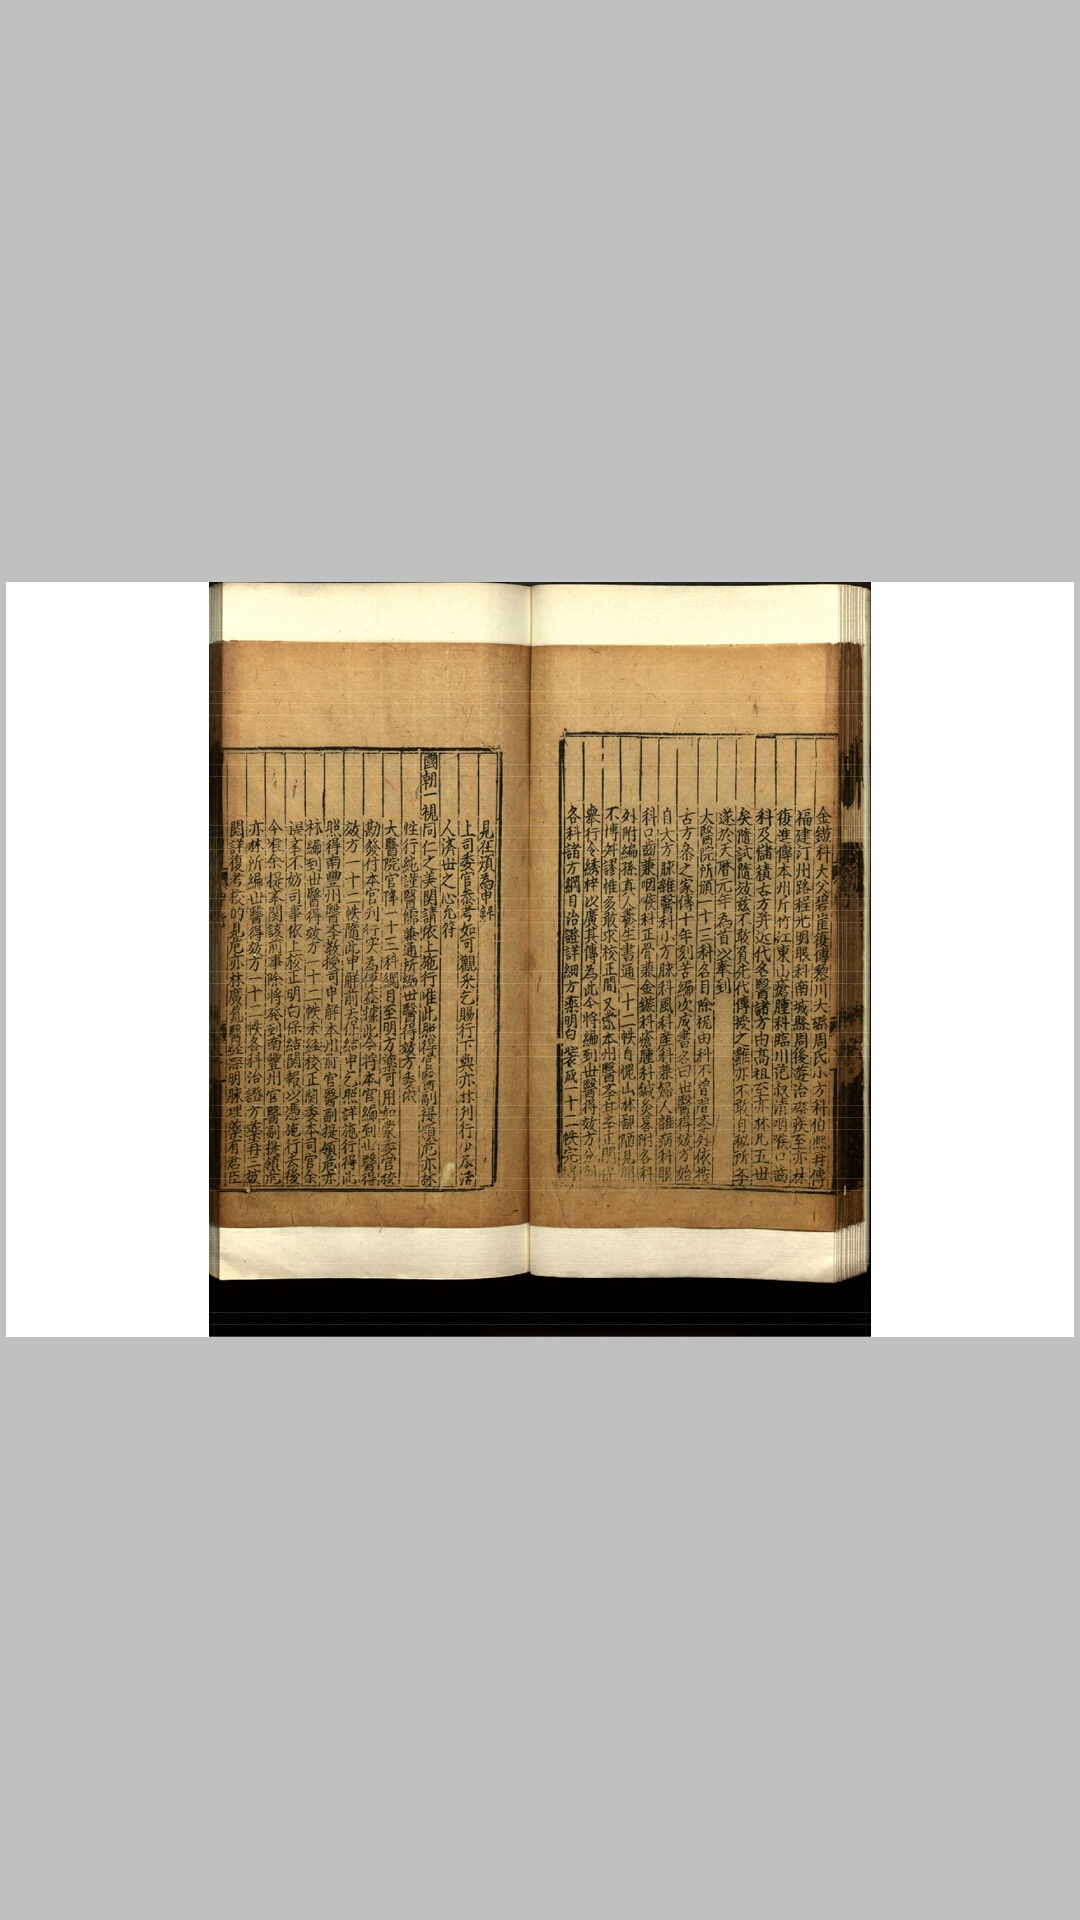 金鏃科大父碧崖復傳黎川大磜周氏小方科伯熙再傳
福建汀州路程光明眼科南城縣周後遊治瘵疾至亦林
復進傳本州斤竹江東山瘡腫科臨川范叔清咽喉口齒
科及儲積古方并近代名醫諸方由高祖至亦林凡五世
矣隨試隨效茲不敢負先代傳授之難亦不敢自秘所手
遂於天曆元年為首以奉到
太醫院所頒一十三科名目除祝由科不曾習學外依按
古方參之家傳十年刻苦編次成書名曰世醫得效方始
自大方脉雜醫科小方脉科風科産科兼婦人雜病科眼
科口齒兼咽喉科正骨兼金鏃科瘡腫科鍼灸畧附各科
外附編孫真人養生書通一十二帙自愧山林鄙陋見聞
不博舛謬惟多敢求校正間又蒙本州醫學
舉行令綉梓以廣其傳為此今將編到世醫得效方分列
各科諸方綱目治證詳細方藥明白裝成一十二帙完
見在煩為申解
上司委官參考如可觀采乞賜行下與亦林刋行少辰活
人濟世之心允符
國朝一視同仁之美関請依上施行唯此照得官醫副提領危亦林
性行純謹醫儒兼通所編世醫得效方委依
太醫院官降一十三科綱目至明方藥可用如蒙委官校
勘發付本官刋行實為得發據此今將本官編到世醫得
效方一十二帙隨此申解前去保結申乞照詳施行得此
照得南豐州醫學教授司申解本州前官醫副提領危亦
林編到世醫得效方一十二帙未經校正関委本司官余
提舉不妨司事依上校正明白保結関報以憑施行去後
今准余提舉関該前事除將發到南豐州官醫副提領危
亦林所編世醫得效方一十二帙各科治證方藥再三披
閱詳復考較的見危亦林廣覽醫經深明脉理藥有君臣